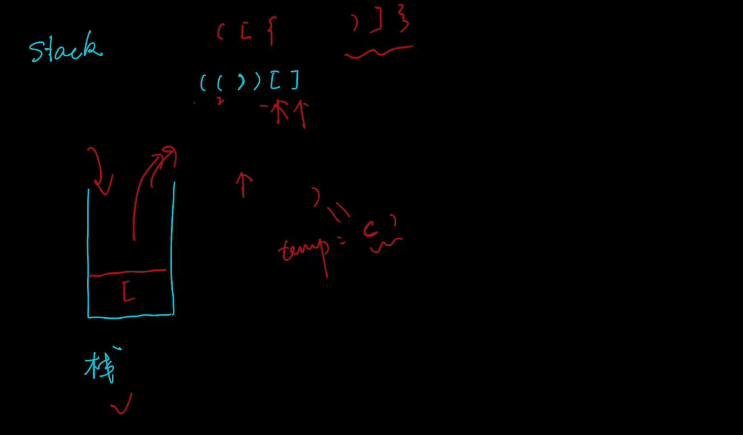 ( [ { ) ] }
stack
( ( ) ) [ ]
)
temp = ( )
[
栈